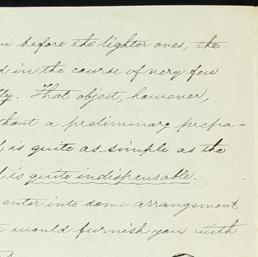 before the lighter ones, the
in the course of very few
That object, however,
a preliminary prepa-
is quite as simple as the
is quite indispensable.
enter into some arrangement
would furnish you with